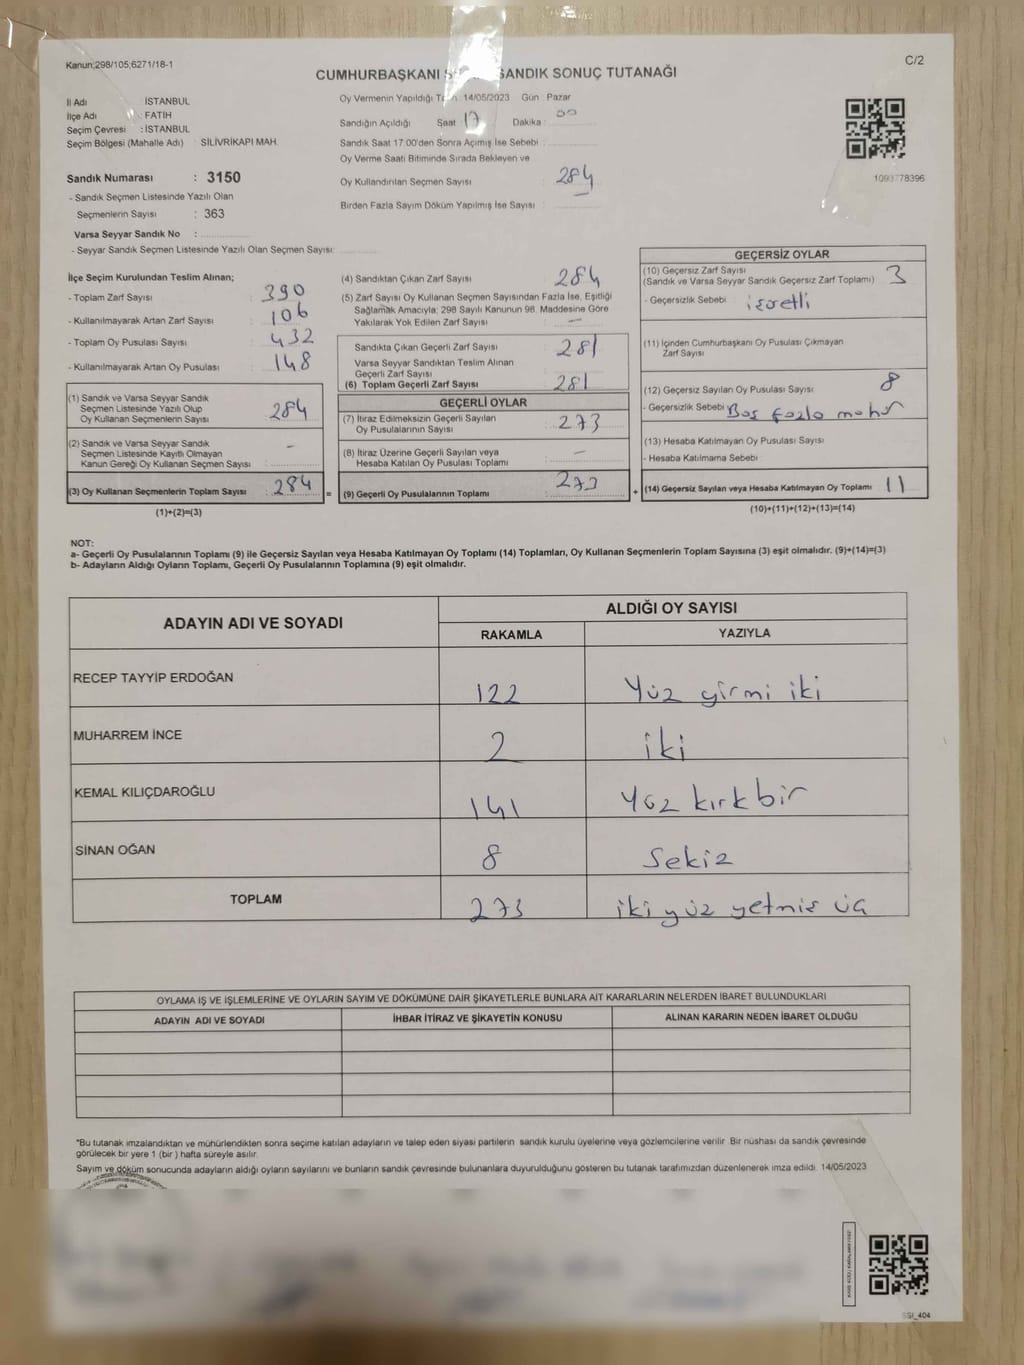 Kanun;298/105;6271/18-1
C/2
CUMHURBAŞKANI SANDIK SONUÇ TUTANAĞI
İl Adı İSTANBUL
İlçe Adı : FATİH
Seçim Çevresi : İSTANBUL
Seçim Bölgesi (Mahalle Adı) : SİLİVRİKAPI MAH.
Sandık Numarası : 3150
- Sandık Seçmen Listesinde Yazılı Olan
Seçmenlerin Sayısı : 363
Varsa Seyyar Sandık No :
- Seyyar Sandık Seçmen Listesinde Yazılı Olan Seçmen Sayısı:
Oy Vermenin Yapıldığı : 14/05/2023 Gün : Pazar
Sandığın Açıldığı Saat 17 Dakika : 00
Sandık Saat 17.00'den Sonra Açımış İse Sebebi :
Oy Verme Saati Bitiminde Sırada Bekleyen ve
Oy Kullandırılan Seçmen Sayısı : 284
Birden Fazla Sayım Döküm Yapılmış İse Sayısı :
1093778396
İlçe Seçim Kurulundan Teslim Alınan;
- Toplam Zarf Sayısı : 390
- Kullanılmayarak Artan Zarf Sayısı : 106
- Toplam Oy Pusulası Sayısı : 432
- Kullanılmayarak Artan Oy Pusulası : 148
(1) Sandık ve Varsa Seyyar Sandık
Seçmen Listesinde Yazılı Olup
Oy Kullanan Seçmenlerin Sayısı : 284
(2) Sandık ve Varsa Seyyar Sandık
Seçmen Listesinde Kayıtlı Olmayan
Kanun Gereği Oy Kullanan Seçmen Sayısı : -
(3) Oy Kullanan Seçmenlerin Toplam Sayısı : 284
(1)+(2)=(3)
(4) Sandıktan Çıkan Zarf Sayısı : 284
(5) Zarf Sayısı Oy Kullanan Seçmen Sayısından Fazla İse, Eşitliği
Sağlamak Amacıyla; 298 Sayılı Kanunun 98. Maddesine Göre
Yakılarak Yok Edilen Zarf Sayısı : -
Sandıkta Çıkan Geçerli Zarf Sayısı : 281
Varsa Seyyar Sandıktan Teslim Alınan
Geçerli Zarf Sayısı :
(6) Toplam Geçerli Zarf Sayısı : 281
GEÇERLİ OYLAR
(7) İtiraz Edilmeksizin Geçerli Sayılan
Oy Pusulalarının Sayısı : 273
(8) İtiraz Üzerine Geçerli Sayılan veya
Hesaba Katılan Oy Pusulası Toplamı : -
= (9) Geçerli Oy Pusulalarının Toplamı : 273
GEÇERSİZ OYLAR
(10) Geçersiz Zarf Sayısı
(Sandık ve Varsa Seyyar Sandık Geçersiz Zarf Toplamı) : 3
- Geçersizlik Sebebi : işretli
(11) İçinden Cumhurbaşkanı Oy Pusulası Çıkmayan
Zarf Sayısı
(12) Geçersiz Sayılan Oy Pusulası Sayısı : 8
- Geçersizlik Sebebi Boş fazla mühür
(13) Hesaba Katılmayan Oy Pusulası Sayısı
- Hesaba Katılmama Sebebi
+ (14) Geçersiz Sayılan veya Hesaba Katılmayan Oy Toplamı : 11
(10)+(11)+(12)+(13)=(14)
NOT:
a- Geçerli Oy Pusulalarının Toplamı (9) ile Geçersiz Sayılan veya Hesaba Katılmayan Oy Toplamı (14) Toplamları, Oy Kullanan Seçmenlerin Toplam Sayısına (3) eşit olmalıdır. (9)+(14)=(3)
b- Adayların Aldığı Oyların Toplamı, Geçerli Oy Pusulalarının Toplamına (9) eşit olmalıdır.
ADAYIN ADI VE SOYADI
ALDIĞI OY SAYISI
RAKAMLA YAZIYLA
RECEP TAYYİP ERDOĞAN 122 Yüz yirmi iki
MUHARREM İNCE 2 iki
KEMAL KILIÇDAROĞLU 141 Yüz kırk bir
SİNAN OĞAN 8 Sekiz
TOPLAM 273 iki yüz yetmiş üç
OYLAMA İŞ VE İŞLEMLERİNE VE OYLARIN SAYIM VE DÖKÜMÜNE DAİR ŞİKAYETLERLE BUNLARA AİT KARARLARIN NELERDEN İBARET BULUNDUKLARI
ADAYIN ADI VE SOYADI İHBAR İTİRAZ VE ŞİKAYETİN KONUSU ALINAN KARARIN NEDEN İBARET OLDUĞU
*Bu tutanak imzalandıktan ve mühürlendikten sonra seçime katılan adayların ve talep eden siyasi partilerin sandık kurulu üyelerine veya gözlemcilerine verilir. Bir nüshası da sandık çevresinde
görülecek bir yere 1 (bir ) hafta süreyle asılır.
Sayım ve döküm sonucunda adayların aldığı oyların sayılarını ve bunların sandık çevresinde bulunanlara duyurulduğunu gösteren bu tutanak tarafımızdan düzenlenerek imza edildi. 14/05/2023
SSI_404